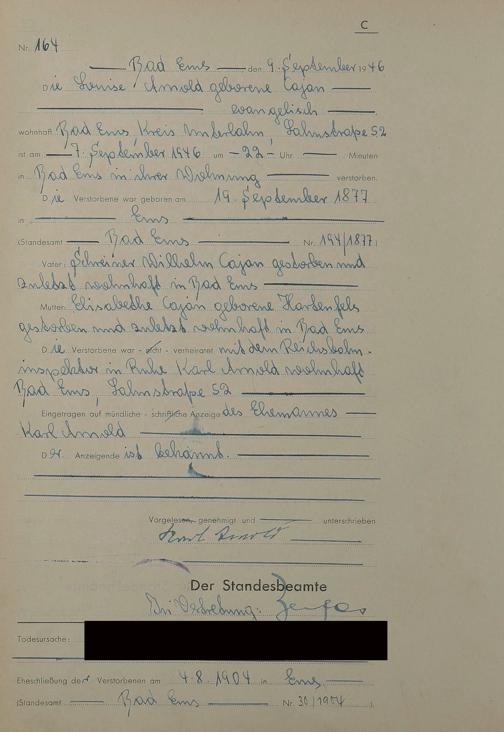 C
Nr. 164
Bad Ems den 9. September 1946
Die Louise Arnold geborene Cajan
evangelisch
wohnhaft Bad Ems, Kreis Unterlahn, Lahnstraße 52
ist am 7. September 1946 um 22 Uhr Minuten
in Bad Ems in ihrer Wohnung verstorben.
Die Verstorbene war geboren am 19. September 1877
in Ems
(Standesamt Bad Ems Nr. 194/1877)
Vater: Schreiner Wilhelm Cajan gestorben und
zuletzt wohnhaft in Bad Ems
Mutter: Elisabethe Cajan geborene Hartenfels
gestorben und zuletzt wohnhaft in Bad Ems
Die Verstorbene war - nicht - verheiratet mit dem Reichsbahn-
inspektor in Ruhe Karl Arnold wohnhaft
Bad Ems, Lahnstraße 52
Eingetragen auf mündliche - schriftliche Anzeige des Ehemannes
Karl Arnold
Der Anzeigende ist bekannt.
Vorgelesen, genehmigt und unterschrieben
Karl Arnold
Der Standesbeamte
In Vertretung:
Todesursache:
Eheschließung der Verstorbenen am 4.8.1904 in Ems
(Standesamt Bad Ems Nr. 30/1904)